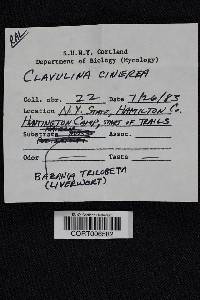 S.U.N.Y. Cortland
Department of Biology (Mycology)
CLAVULINA CINEREA
Coll. nbr. 22 Date 7/26/83
Location N.Y. STATE, HAMILTON CO.
HUNTINGTON CAMP, START OF TRAILS
Substrate Assoc.
Odor Taste
BAZANIA TRILOBETA
(LIVERWORT)